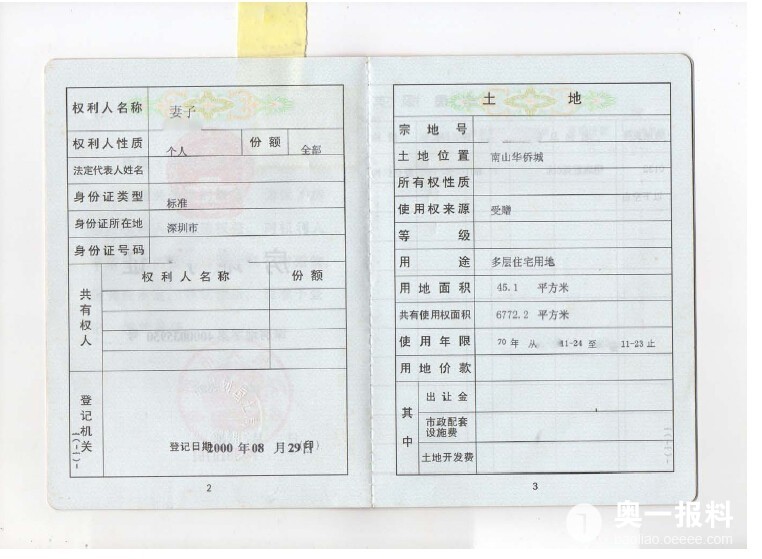 权利人名称 妻子
权利人性质 个人 份额 全部
法定代表人姓名
身份证类型 标准
身份证所在地 深圳市
身份证号码
共有权人
权利人名称 份额
登记机关
登记日期2000 年08 月29日(印)
2
土地
宗地号
土地位置 南山华侨城
所有权性质
使用权来源 受赠
等级
用途 多层住宅用地
用地面积 45.1 平方米
共有使用权面积 6772.2 平方米
使用年限 70年 从 11-24 至 11-23止
用地价款
其中
出让金
市政配套
设施费
土地开发费
3
奥一报料
baoliao.oeeee.com